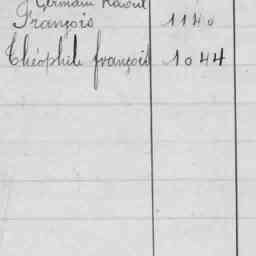 Germain Raoul
François 1140
Théophile françois 1044